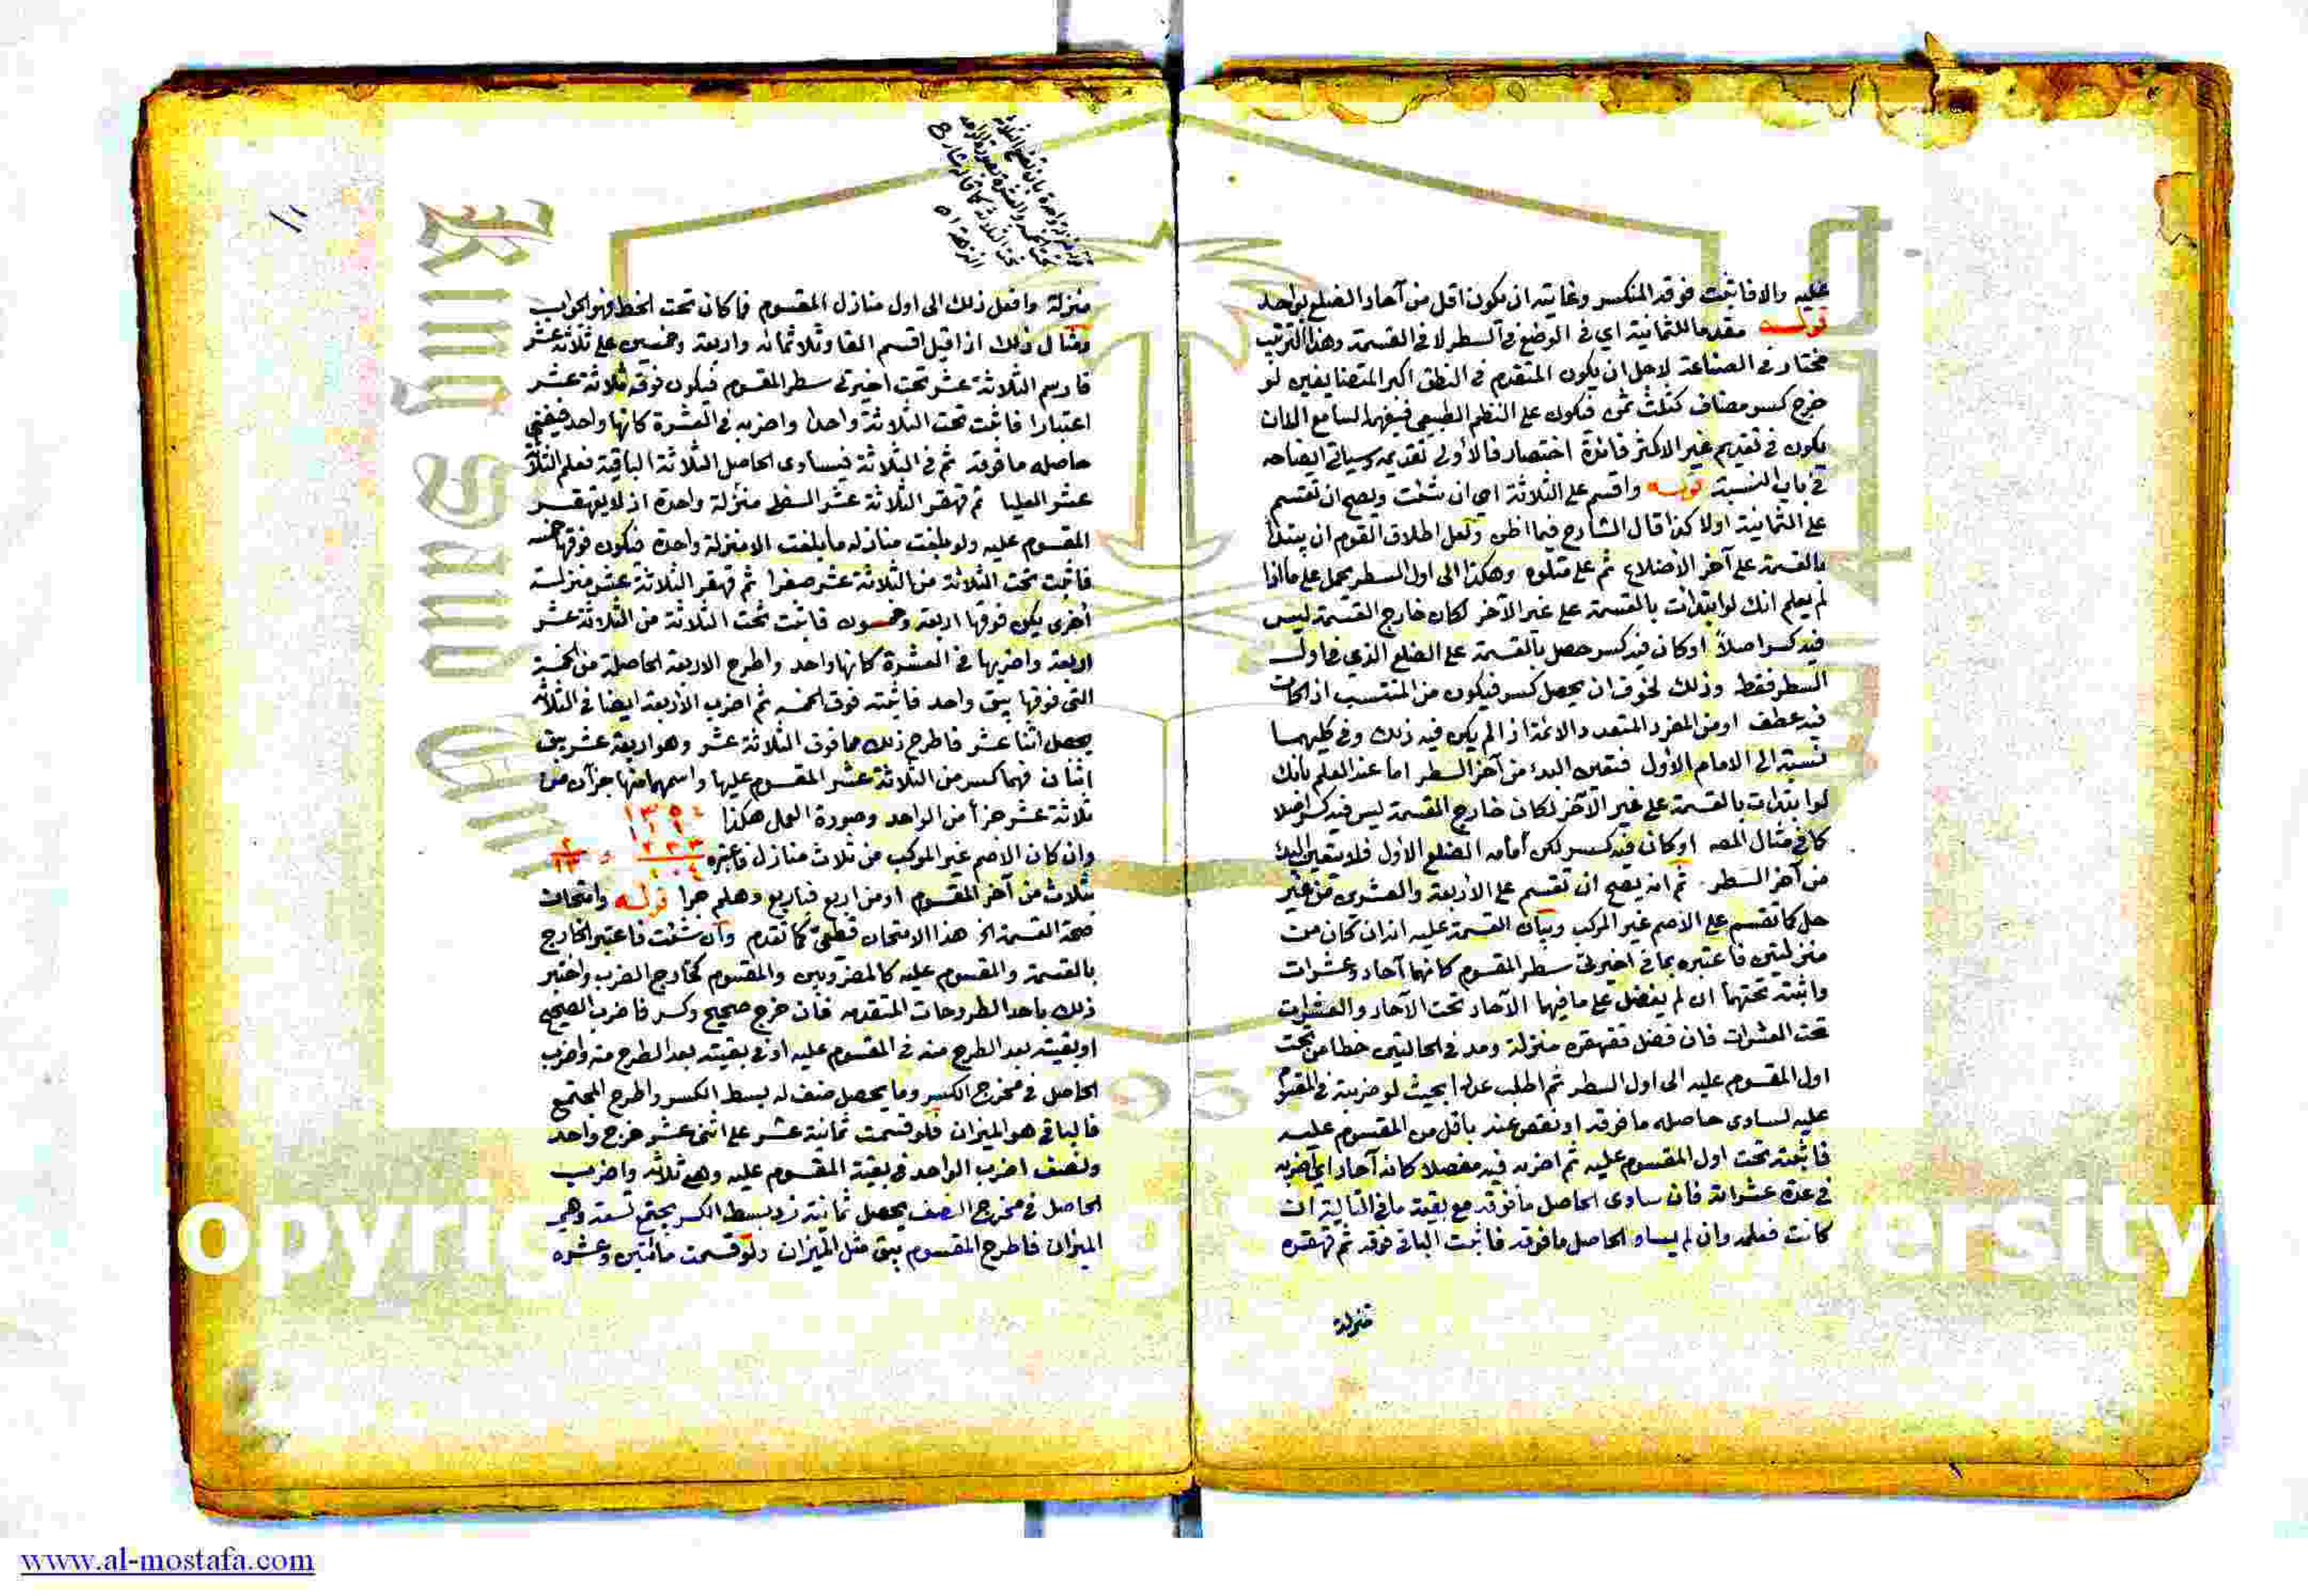 عليه والا فاثبت فوقه المنكسر وغايته ان يكون اقل من آحاد الضلع بواحد
قوله مقدما للثمانية اي في الوضع في السطر لا في القسمة وهذا الترتيب
مختار في الصناعة لاجل ان يكون المتقدم في النطق اكبر المتضايفين لو
خرج كسر مضاف كثلث ثمن فيكون على النظم الطبيعي فيفهمه السامع الا ان
يكون في تقديم غير الاكثر فائدة اختصار فالأولى تقديمه وسياتي ايضاحه
في باب النسبة قوله واقسم على الثلاثة اي ان شئت ويصح ان تقسم
على الثمانية اولا كذا قال الشارح فيما اظن ولعل اطلاق القوم ان يبتدأ
بالقسمة على آخر الأضلاع ثم على متلوه وهكذا الى اول السطر يحمل على ما اذا
لم يعلم انك لو ابتدات بالقسمة على غير الآخر لكان خارج القسمة ليس
فيه كسر اصلا او كان فيه كسر حصل بالقسمة على الضلع الذي في اول
السطر فقط وذلك لخوف ان يحصل كسر فيكون من المنتسب اذا كان
فيه عطف او من المفرد المتعدد الائمة اذا لم يكن فيه ذلك وفي كليهما
نسبة الى الامام الأول فتعين البدء من آخر السطر اما عند العلم بانك
لو ابتدات بالقسمة على غير الآخر لكان خارج القسمة ليس فيه كسر اصلا
كما في مثال المصـ او كان فيه كسر لكن أمامه الضلع الاول فلا يتعين البدء
من آخر السطر ثم انه يصح ان تقسم على الأربعة والعشرين من غير
حل كما تقسم على الاصم غير المركب وبيان القسمة عليه انه ان كان من
منزلتين فاعتبره بما في اخيرتي سطر المقسوم كانهما آحاد وعشرات
واثبته تحتهما ان لم يفضل على ما فيهما الآحاد تحت الآحاد والعشرات
تحت العشرات فان فضل فقهقره منزلة ومد في الحالتين خطا من تحت
اول المقسوم عليه الى اول السطر ثم اطلب عددا بحيث لو ضربته في المقسوم
عليه لساوى حاصله ما فوقه او نقص عنه باقل من المقسوم عليه
فاثبته تحت اول المقسوم عليه ثم اضربه فيه مفصلا كانه آحاد اي اضربه
في عدة عشراته فان ساوى الحاصل ما فوقه مع بقية ما في التالية ان
كانت فعلمه وان لم يساو الحاصل ما فوقه فاثبت الباقي فوقه ثم قهقره
منزلة
١١
منزلة واحدة بان تضع الثلاثة
تحت الخمسة والعشرة
تحت الثلاثة كما قاله شارح
النزهة اه
منزلة وافعل ذلك الى اول منازل المقسوم فما كان تحت الخط فهو الجواب
مثال ذلك اذا قيل اقسم الفا وثلاثمائة واربعة وخمسين على ثلاثة عشر
فارسم الثلاثة عشر تحت اخيرتي سطر المقسوم فيكون فوقه ثلاثة عشر
اعتبارا فاثبت تحت الثلاثة واحدا واضربه في العشرة كانها واحد فيفنى
حاصله ما فوقه ثم في الثلاثة فيساوى الحاصل الثلاثة الباقية فعلم الثلاثة
عشر العليا ثم قهقر الثلاثة عشر السفلى منزلة واحدة اذ لا يقهقر
المقسوم عليه ولو بلغت منازله ما بلغت الا منزلة واحدة فيكون فوقها خمسة
فاثبت تحت الثلاثة من الثلاثة عشر صفرا ثم قهقر الثلاثة عشر منزلة
أخرى يكن فوقها اربعة وخمسون فاثبت تحت الثلاثة من الثلاثة عشر
اربعة واضربها في العشرة كانها واحد واطرح الاربعة الحاصلة من الخمسة
التي فوقها يبق واحد فاثبته فوق الخمسة ثم اضرب الأربعة ايضا في الثلاثة
يحصل اثنا عشر فاطرح ذلك مما فوق الثلاثة عشر وهو اربعة عشر يبق
اثنان فهما كسر من الثلاثة عشر المقسوم عليها واسمهما منها جزآن من
ثلاثة عشر جزأ من الواحد وصورة العمل هكذا ١٣٥٤
وان كان الاصم غير المركب من ثلاث منازل فاعتبره
بثلاث من آخر المقسوم او من اربع فباربع وهلم جرا قوله وامتحان
صحة القسمة الخ هذا الامتحان قطعي كما تقدم وان شئت فاعتبر الخارج
بالقسمة والمقسوم عليه كالمضروبين والمقسوم كخارج الضرب واختبر
ذلك باحد الطروحات المتقدمة فان خرج صحيح وكسر فاضرب الصحيح
او بقيته بعد الطرح منه في المقسوم عليه او في بقيته بعد الطرح منه واضرب
الحاصل في مخرج الكسر وما يحصل ضف له بسط الكسر واطرح المجتمع
فالباقي هو الميزان فلو قسمت ثمانية عشر على اثنى عشر خرج واحد
ونصف اضرب الواحد في بقية المقسوم عليه وهي ثلاثة واضرب
الحاصل في مخرج النصف يحصل ثمانية زد بسط الكسر يجتمع تسعة وهي
الميزان فاطرح المقسوم يبق مثل الميزان ولو قسمت مائتين وعشرة
www.al-mostafa.com